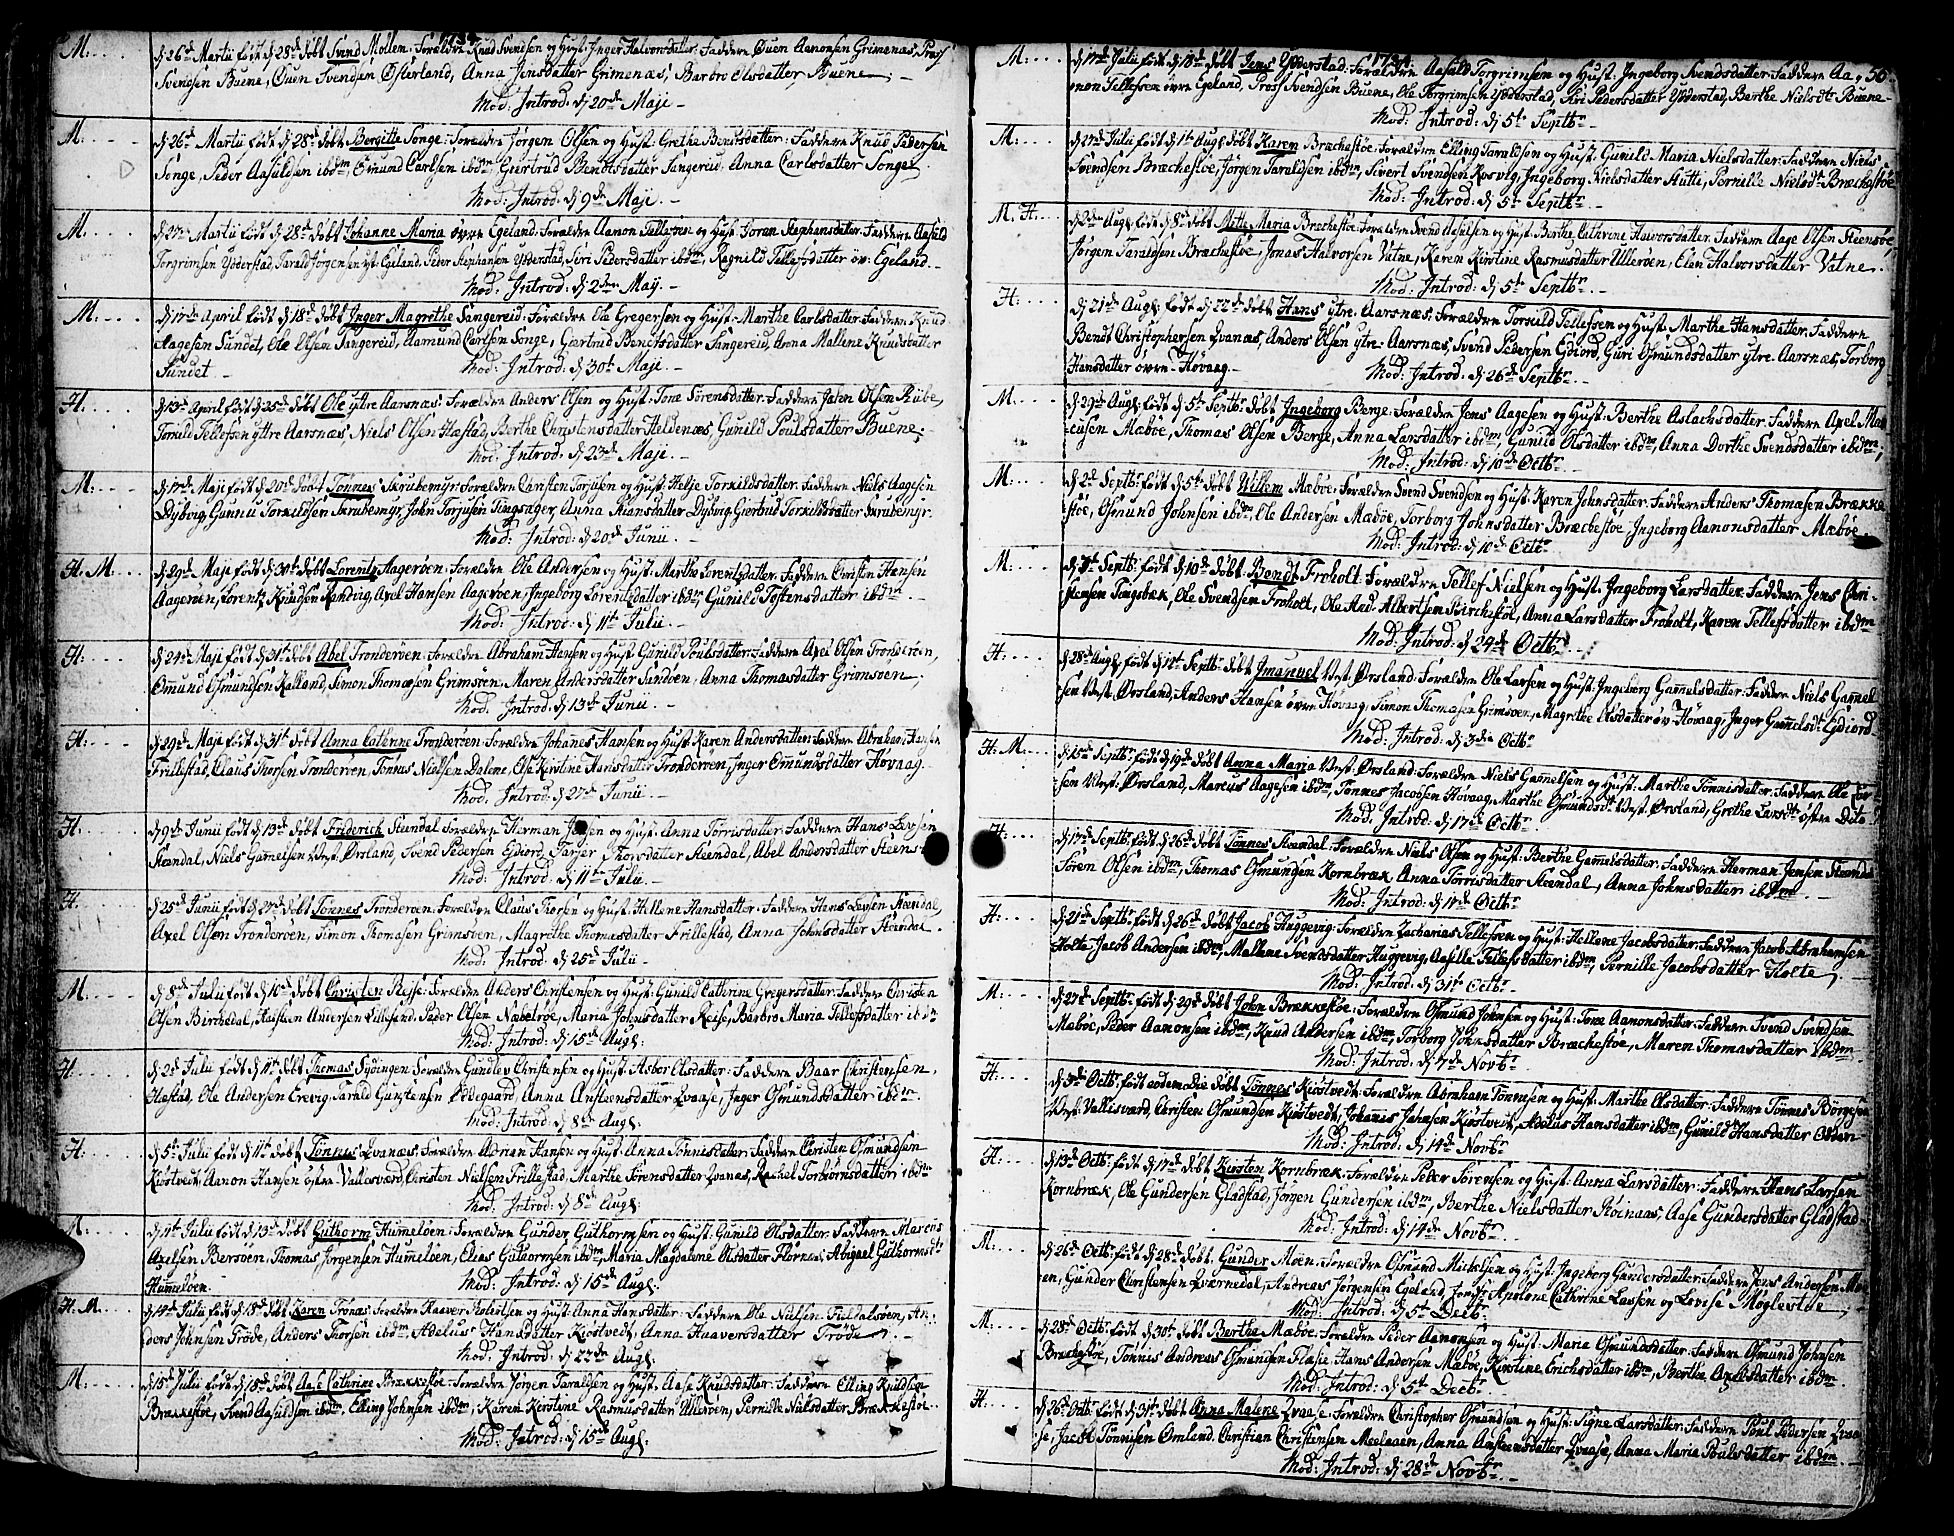 1784
M: d 26d Martii født d 28d døbt Svend Mollem: Forældre Knud Svendsen og Hust: Inger Halvorsdatter: Faddere Ouen Aamonsen Grimenæs,
Svendsen Buene, Ouen Svendsen Østerland, Anna Jensdatter Grimenæs, Barbro Olsdatter, Buene. –
Mod: Introd: d 20d Maji –
M: d 26d Martii født d 28d døbt Bergitte Songe: Forældre Jørgen Olsen og Hust: Grethe Bentsdatter: Faddere Knud Pedersen
Songe, Peder Aasuldsen ibdm, Omund Carlsen ibdm, Giertrud Bendtsdatter Tangereid, Anna Carlsdatter Songe
Mod: Introd: d 9d Maji. –
M: d Martii født d 28d døbt Johanne Maria øvre Egeland: Forældre Aamon Tellefsen og Hust: Søran Stephansdatter: Faddere Aasild
Torgrimsen Ydderstad, Tarald Jorgensen Egeland, Peder Stephansen Ydderstad, Siri Pedersdatter ibdm, Ragnild Tellefsdatter øv: Egeland. –
Mod: Introd: d 2den Maij. –
M: d 17d April født d 18d døbt Inger Magrethe Tangereid: Forældre Ole Gregersen og Hust: Marthe Carlsdatter: Faddere Knud
Aagesen Sundet, Ole Olsen Tangereid, Aamund Carlsen Songe, Giertrud Bentsdatter Tangereid, Anna Mallene Knudsdatter
Sundet – Mod: Introd: d 30t Maji –
H: d 13d April født d 25d døbt Ole yttre Aarsnæs: Forældre Anders Olsen og Hust: Tone Sørensdatter: Faddere Jahen Olsen Ribe,
Torkild Tellefsen yttre Aarsnæs, Niels Olsen Hæstad, Berthe Christensdatter Heldenæs, Gunild Poulsdatter Buene. –
Mod: Introd: d 23d Maji. –
M: d 17d Maji født d 20d døbt Tønnes Skrubemyr: Forældre Carsten Torjusen og Hust: Helje Torkildsdatter: Faddere Niels Aagesen
Dybvig, Gunnu Torkildsen Skrubemyr, John Torjusen Tingsager, Anna Kiansdatter Dybvig, Giertrud Torkildsdatter Skrubemyr.
Mod: Introd: d 20d Junii. –
H: M. d 29d Maji født d 30t døbt Lorentz Aagerøen: Forældre Ole Andersen og Hust: Marthe Lorentsdatter: Faddere Christen Hansen
Aagerøen, Lorentz Knudsen Randvig, Axel Hansen Aagerøen, Ingeborg Lorentzdatter ibdm, Gunild Tostensdatter ibdm. –
Mod: Introd: d 11t Julii. –
H: d 24d Maji født d 31t døbt Abel Tronderøen: Forældre Abraham Hansen og Hust: Gunild Poulsdatter: Faddere Axel Olsen Tronderøen,
Omund Osmundsen Kalland, Simon Thomæsøn Grimsøen, Maren Andersdatter Sandøen, Anna Thomasdatter Grimsøen,
Mod. Introd: d 13d Junii. –
H: d 29d Maji født d 31t døbt Anna Cathrine Tronderøen: Forældre Johanes Hansen og Hust: Karen Andersdatter: Faddere Abraham Hansen
Frillestad, Claus Thorsen Tronderøen, Tønnes Nielsen Dalene, Else Kirstine Hansdatter Tronderøen, Inger Omundsdatter Høvaag.
Mod: Introd: d 27d Junii. –
H: d 9d Junii født d 13d døbt Friderich Steendal: Forældre Herman Jensen og Hust: Anna Torrisdatter: Faddere Hans Levsen
Steendal, Niels Gamelsen Vest Ørsland, Svend Pedersen Egdiord, Tarjer Thorsdatter Steendal, Abel Andersdatter Steens
Mod: Introd: d 11t Julii. –
H. d 25d Junii født d 27d døbt Tønnes Tronderøen: Forældre Claus Torsen og Hust: Hellene Hansdatter: Faddere Hans Levsen Steendal,
Axel Olsen Tronderøen, Simon Thomasen Grimsøen, Magrethe Thomasdatter Frillestad, Anna Johnsdatter Steendal.
Mod: Introd: d 25d Julii –
M. d 8d Julii født d 10d døbt Christen Reise: Forældre Anders Christensen og Hust: Gunild Cathrine Gregersdatter: Faddere Christen
Olsen Birchedal, Andersen Lillesand, Peder Olsen Næbelrøe, Maria Johnsdatter Reise, Barbro Maria Tellefsdatter ibdm
Mod: Introd: d 15d Augl:
H d 2d Julii født d 11t døbt Thomas Sydingen: Forældre Gundlev Christensen og Hust: Asbor Olsdatter: Faddere Baar Christensen,
Hæstad, Ole Andersen Erevig, Tarald Guntesen Ødegaard, Anna Ansteensdatter Qvaase, Inger Osmundsdatter ibdm.
Mod: Introd: d 8d Augl:
H. d 5t Julii født d 11t døbt Tønnes Qvanæs: Forældre Adrian Hansen og Hust: Anna Tønnisdatter: Faddere Christen Osmundsen
Kiøstvedt, Aamon Hansen østre Vallesværd, Christen Nielsen Frillestad, Marthe Sørensdatter Qvanæs, Rachel Torbiørnsdatter ibdm
Mod: Introd: d 8d Augl:
M. d 9t Julii født d 13d døbt Guthorm Humeløen: Forældre Gunder Guthormsen og Hust: Gunild Olsdatter: Faddere Marcus
Axelsen Bersøen, Thomas Jørgensen Humeløen, Elias Guthormsen ibdm, Maria Magdalene Olsdatter Flornæs, Abigael Guthormsdtr
Humeløen. Mod: Introd: d 15d Augl:
H. M. d 14d Julii født d 18d døbt Karen Tronæs: Forældre Haaver Robertsen og Hust: Anna Hansdatter: Faddere Ole Nielsen Fieldalsøen, An-
ders Johnsen Trøde, Anders Thorsen ibdm, Adelus Hansdatter Kiøstvedt, Anna Haaversdatter Trøde. –
Mod: Introd: d 22de Augl:
M. d 15d Julii født d 18d døbt Aase Cathrine Brækkestøe: Forældre Jørgen Taraldsen og Hust: Aase Knudsdatter: Faddere Elling Knudsen
Brækkestøe, Svend Aasuldsen ibdm, Elling Johnsen ibdm, Karen Kirstine Rasmusdatter Ulerøen, Pernille Nielsdatter Brækkestøe.
Mod: Introd: d 15d Augl:
1784. 50
M: d 17d Julii født d 18d døbt Jens Ydderstad: Forældre Aasuld Torgrimsen og Hust: Ingeborg Svendsdatter: Faddere Aa-
mon Tellefsen øvre Egeland, Tross Svendsen Buene, Ole Torgrimsen Ydderstad, Siri Pedersdatter Ydderstad, Berthe Nielsdtr Buene –
Mod: Introd: d 5t Septbr –
M: d 27d Julii født d 1t Augl døbt Karen Bræchestøe: Forældre Elling Taraldsen og Hust: Gunild Maria Nielsdatter: Faddere Niels
Svendsen Bræchestøe, Jørgen Taraldsen ibdm, Sivert Svendsen Kosvig, Ingeborg Nielsdatter Hutte, Pernille Nielsdtr Bræchestøe,
Mod: Introd: d 5t Septbr –
M. H: d 2den Augl født d 8d døbt Mitte Maria Bræchestøe: Forældre Svend Asulsen og Hust: Birthe Cathrine Halvorsdatter: Faddere Aage Olsen Steensøe,
Jørgen Taraldsen Bræchestøe, Jonas Halvorsen Vatne, Karen Kirstine Rasmusdatter Ulerøen, Elen Halvorsdatter Vatne.
Mod: Introd: d 5t Septbr –
H: d 21de Augl født d 22de døbt Hans ytre Aarsnæs: Forældre Torkild Tellefsen og Hust: Marthe Hansdatter: Faddere
Bendt Christophersen Qvanæs, Anders Olsen ytre Aarsnæs, Svend Pedersen Egdiord, Guri Osmundsdatter ytre Aarsnæs, Torborg
Hansdatter øvre Høvaag – Mod: Introd: d 26d Septbr –
M: d 29d Augl født d 5t Septbr døbt Ingeborg Berge: Forældre Jens Aagesen og Hust: Berthe Aslachsdatter: Faddere Axel Mar-
cusen Mæbøe, Thomas Olsen Berge, Anna Larsdatter ibdm, Gunild Olsdatter ibdm, Anna Dorthe Svendsdatter ibdm,
Mod: Introd: d 10d Octbr –
M: d 2d Septbr født d 5t døbt Willem Mæbøe: Forældre Svend Svendsen og Hust: Karen Johnsdatter: Faddere Anders Thomasen Brække-
støe, Osmund Johnsen ibdm, Ole Andersen Mæbøe, Torborg Johnsdatter Bræchestøe, Ingeborg Aamonsdatter Mæbøe. –
Mod: Introd: d 10d Octbr
M: d 7t Septbr født d 10d døbt Bendt Froholt: Forældre Tellef Nielsen og Hust: Ingeborg Larsdatter: Faddere Jens Chri-
stensen Tingsbæk, Ole Svendsen Froholt, Ole And: Albertsen Birchestøl, Anna Larsdatter Froholt, Karen Tellefsdatter ibdm
Mod: Introd: d 24de Octbr –
H: d 28d Augl født d 12t Septbr døbt Imanuel Vest Ørsland: Forældre Ole Larsen og Hust: Ingeborg Gamelsdatter: Faddere Niels Gamel-
sen Vest Ørsland, Anders Hansen øvre Høvaag, Simon Thomasen Grimsøen, Magrethe Olsdatter øv: Høvaag, Inger Gamelsdtr Egdiord –
Mod: Introd: d 3die Octbr –
H: M. d 16d Septbr født d 19d døbt Anna Maria Vest Ørsland: Forældre Niels Gamelsen og Hust: Marthe Tønnisdatter: Faddere Ole
sen Vest Ørsland, Marcus Aagesen ibdm, Tønnes Jacobsen Høvaag, Marthe Osmundsdtr Vest Ørsland, Grethe Larsdtr østre
Mod: Introd: d 17d Octbr –
H: d 17d Septbr født d 26d døbt Tønnes Steendal: Forældre Niels Olsen og Hust: Berthe Gamelsdatter: Faddere Herman Jensen Steendal
Søren Olsen ibdm, Thomas Osmundsen Kornbræk, Anna Torrisdatter Steendal, Anna Johnsdatter ibdm
Mod: Introd: d 17d Octbr
H: d 21d Septbr født d 26d døbt Jacob Huggevig: Forældre Zacharias Tellefsen og Hust: Hellene Jacobsdatter: Faddere Jacob Abrahamsen
Holte, Jacob Andersen ibdm, Mallene Svendsdatter Huggevig, Aasille Tellefsdatter ibdm, Pernille Jacobsdatter Holte,
Mod: Introd: d 31t Octbr –
M: d 27d Septbr født d 29d døbt John Brækkestøe: Forældre Osmund Johnsen og Hust: Tone Aamonsdatter: Faddere Svend Svendsen
Mæbøe, Peder Aamonsen ibdm, Knud Andersen ibdm, Torborg Johnsdatter Bræchestøe, Maren Thomasdatter ibdm –
Mod: Introd: d 7de Novbr –
H: d 3d Octbr født eodem Die døbt Tønnes Kiøstvedt: Forældre Abraham Tønnesen og Hust: Marthe Olsdatter: Faddere Tønnes Børgesen
Vest Vallesværd, Christen Osmundsen Kiøstvedt, Johanis Jahnsen Kiøstvedt, Adelus Hansdatter ibdm, Gunild Hansdatter Odden
Mod: Introd: d 14d Novbr –
H: d 13d Octbr født d 17d døbt Kirsten Kornbræk: Forældre Peder Sørensen og Hust: Anna Larsdatter: Faddere Hans Larsen
Kornbræk, Ole Gundersen Gladstad, Jørgen Gundersen ibdm, Berthe Nielsdatter Røinaas, Aase Gundersdatter Gladstad –
Mod: Introd: d 14de Novbr –
M: d 26d Octbr født d 28d døbt Gunder Moen: Forældre Osmund Mickelsen og Hust: Ingeborg Gundersdatter: Faddere Jens Andersen Mo-
en, Gunder Christensen Qværnedal, Andreas Jørgensen Egeland, Jomfr: Apolone Cathrine Lassen og Lovise Møglestøe,
Mod: Introd: d 5t Decbr:
M: d 28d Octbr født d 30t døbt Berthe Mæbøe: Forældre Peder Aamonsen og Hust: Maria Osmundsdatter: Faddere Osmund Johnsen
Bræchestøe, Tønnis Andreas Osmundsen Flasie, Hans Andersen Mæbøe, Kirstine Erichsdatter ibdm, Berthe Axelsdatter ibdm.
Mod: Introd: d 5t Decbr –
H: d 26d Octbr født d 31t døbt Anna Malene Qvaase: Forældre Christopher Osmundsen og Hust: Signe Larsdatter: Faddere Poul Pedersen Qvaa-
se, Jacob Tønnesen Omland, Christian Christensen Meelaaen, Anna Ansteensdatter Qvaase, Anna Maria Poulsdatter ibdm. –
Mod: Introd: d 28d Novbr –